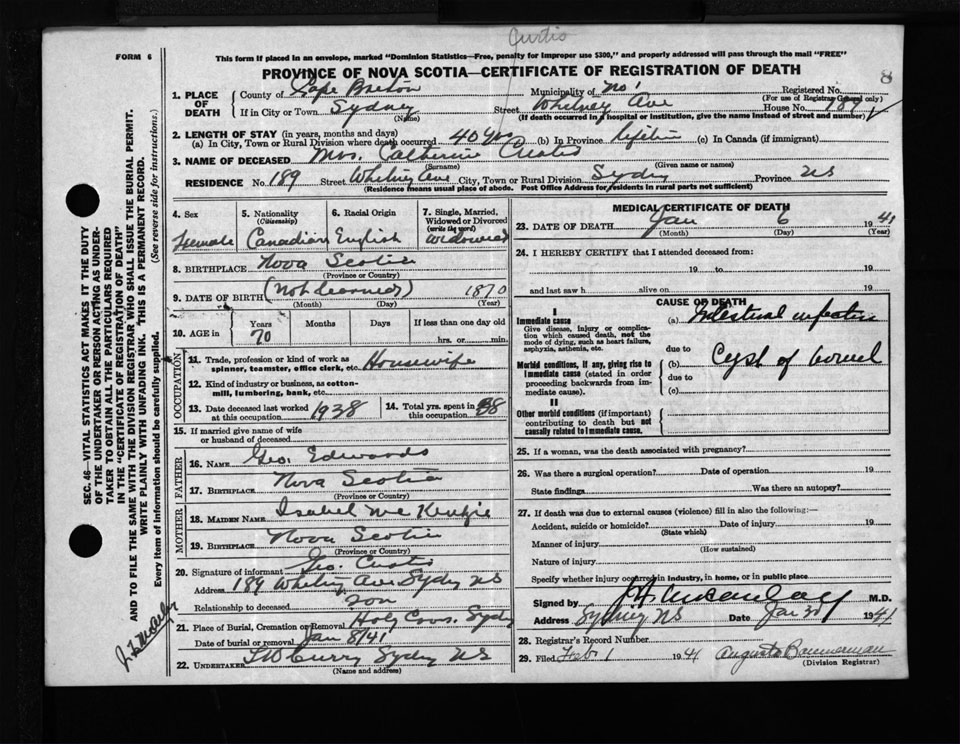 Curtis
FORM 6
This form if placed in an envelope, marked "Dominion Statistics—Free, penalty for improper use $300," and properly addressed will pass through the mail "FREE"
PROVINCE OF NOVA SCOTIA—CERTIFICATE OF REGISTRATION OF DEATH
8
1. PLACE OF DEATH
County of Cape Breton Municipality of No 1 Registered No.
(For use of Registrar General only)
If in City or Town Sydney Street Whitney Ave House No. 189
(Name) (If death occurred in a hospital or institution, give the name instead of street and number)
2. LENGTH OF STAY (in years, months and days)
(a) In City, Town or Rural Division where death occurred 40 yrs (b) In Province Lifetime (c) In Canada (if immigrant)
3. NAME OF DECEASED Mrs. Catherine Curtis
(Surname) (Given name or names)
RESIDENCE No. 189 Street Whitney Ave City, Town or Rural Division Sydney Province NS
(Residence means usual place of abode. Post Office Address for residents in rural parts not sufficient)
4. Sex
Female
5. Nationality
(Citizenship)
Canadian
6. Racial Origin
English
7. Single, Married, Widowed or Divorced
(write the word)
Widowed
8. BIRTHPLACE Nova Scotia
(Province or Country)
9. DATE OF BIRTH (Not learned) 1870
(Month) (Day) (Year)
10. AGE in
Years Months Days If less than one day old
70 hrs. or min.
OCCUPATION
11. Trade, profession or kind of work as spinner, teamster, office clerk, etc. Housewife
12. Kind of industry or business, as cotton-mill, lumbering, bank, etc.
13. Date deceased last worked at this occupation 1938
14. Total yrs. spent in this occupation 38
15. If married give name of wife or husband of deceased
FATHER
16. NAME Geo. Edwards
17. BIRTHPLACE Nova Scotia
(Province or Country)
MOTHER
18. MAIDEN NAME Isabel McKenzie
19. BIRTHPLACE Nova Scotia
(Province or Country)
20. Signature of informant Geo. Curtis
Address 189 Whitney Ave Sydney NS
Relationship to deceased son
21. Place of Burial, Cremation or Removal Holy Cross. Sydney
Date of burial or removal Jan 8/41
22. UNDERTAKER Curry Sydney NS
(Name and address)
MEDICAL CERTIFICATE OF DEATH
23. DATE OF DEATH Jan 6 1941
(Month) (Day) (Year)
24. I HEREBY CERTIFY that I attended deceased from:
19 to 19
and last saw h alive on 19
CAUSE OF DEATH
I
Immediate cause
Give disease, injury or complication which caused death, not the mode of dying, such as heart failure, asphyxia, asthenia, etc.
(a) Intestinal infection
due to
Morbid conditions, if any, giving rise to immediate cause (stated in order proceeding backwards from immediate cause).
(b) Cyst of bowel
due to
(c)
II
Other morbid conditions (if important) contributing to death but not causally related to immediate cause.
25. If a woman, was the death associated with pregnancy?
26. Was there a surgical operation? Date of operation 19
State findings Was there an autopsy?
27. If death was due to external causes (violence) fill in also the following:—
Accident, suicide or homicide? Date of injury 19
(State which)
Manner of injury
(How sustained)
Nature of injury
Specify whether injury occurred in industry, in home, or in public place
Signed by M.D.
Address Sydney NS Date Jan 1941
28. Registrar's Record Number
29. Filed Feb 1 1941 Augusta Bannerman
(Division Registrar)
SEC. 46—VITAL STATISTICS ACT MAKES IT THE DUTY
OF THE UNDERTAKER OR PERSON ACTING AS UNDERTAKER TO OBTAIN ALL THE PARTICULARS REQUIRED
IN THE "CERTIFICATE OF REGISTRATION OF DEATH"
AND TO FILE THE SAME WITH THE DIVISION REGISTRAR WHO SHALL ISSUE THE BURIAL PERMIT.
WRITE PLAINLY WITH UNFADING INK. THIS IS A PERMANENT RECORD.
Every item of information should be carefully supplied. (See reverse side for instructions.)